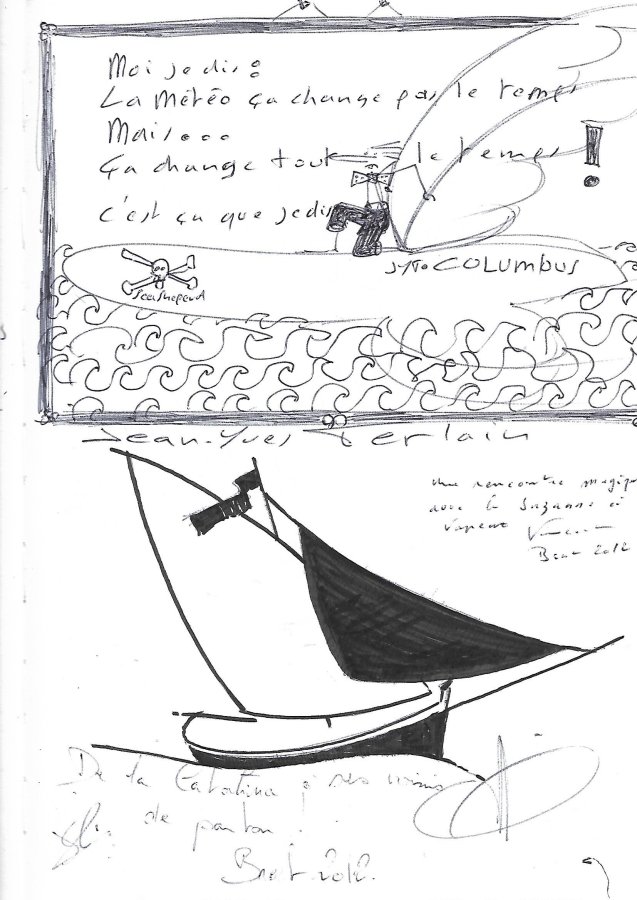 Moi je dis :
La Météo ça change pas le temps
Mais...
Ça change tout le temps !
c'est ça que je dis
COLUMBUS
Jean-Yves Terlain
Une rencontre magique
avec la Suzanne à
Vapeur
Brest 2012
De la Catalina
de ponton !
Brest 2012.